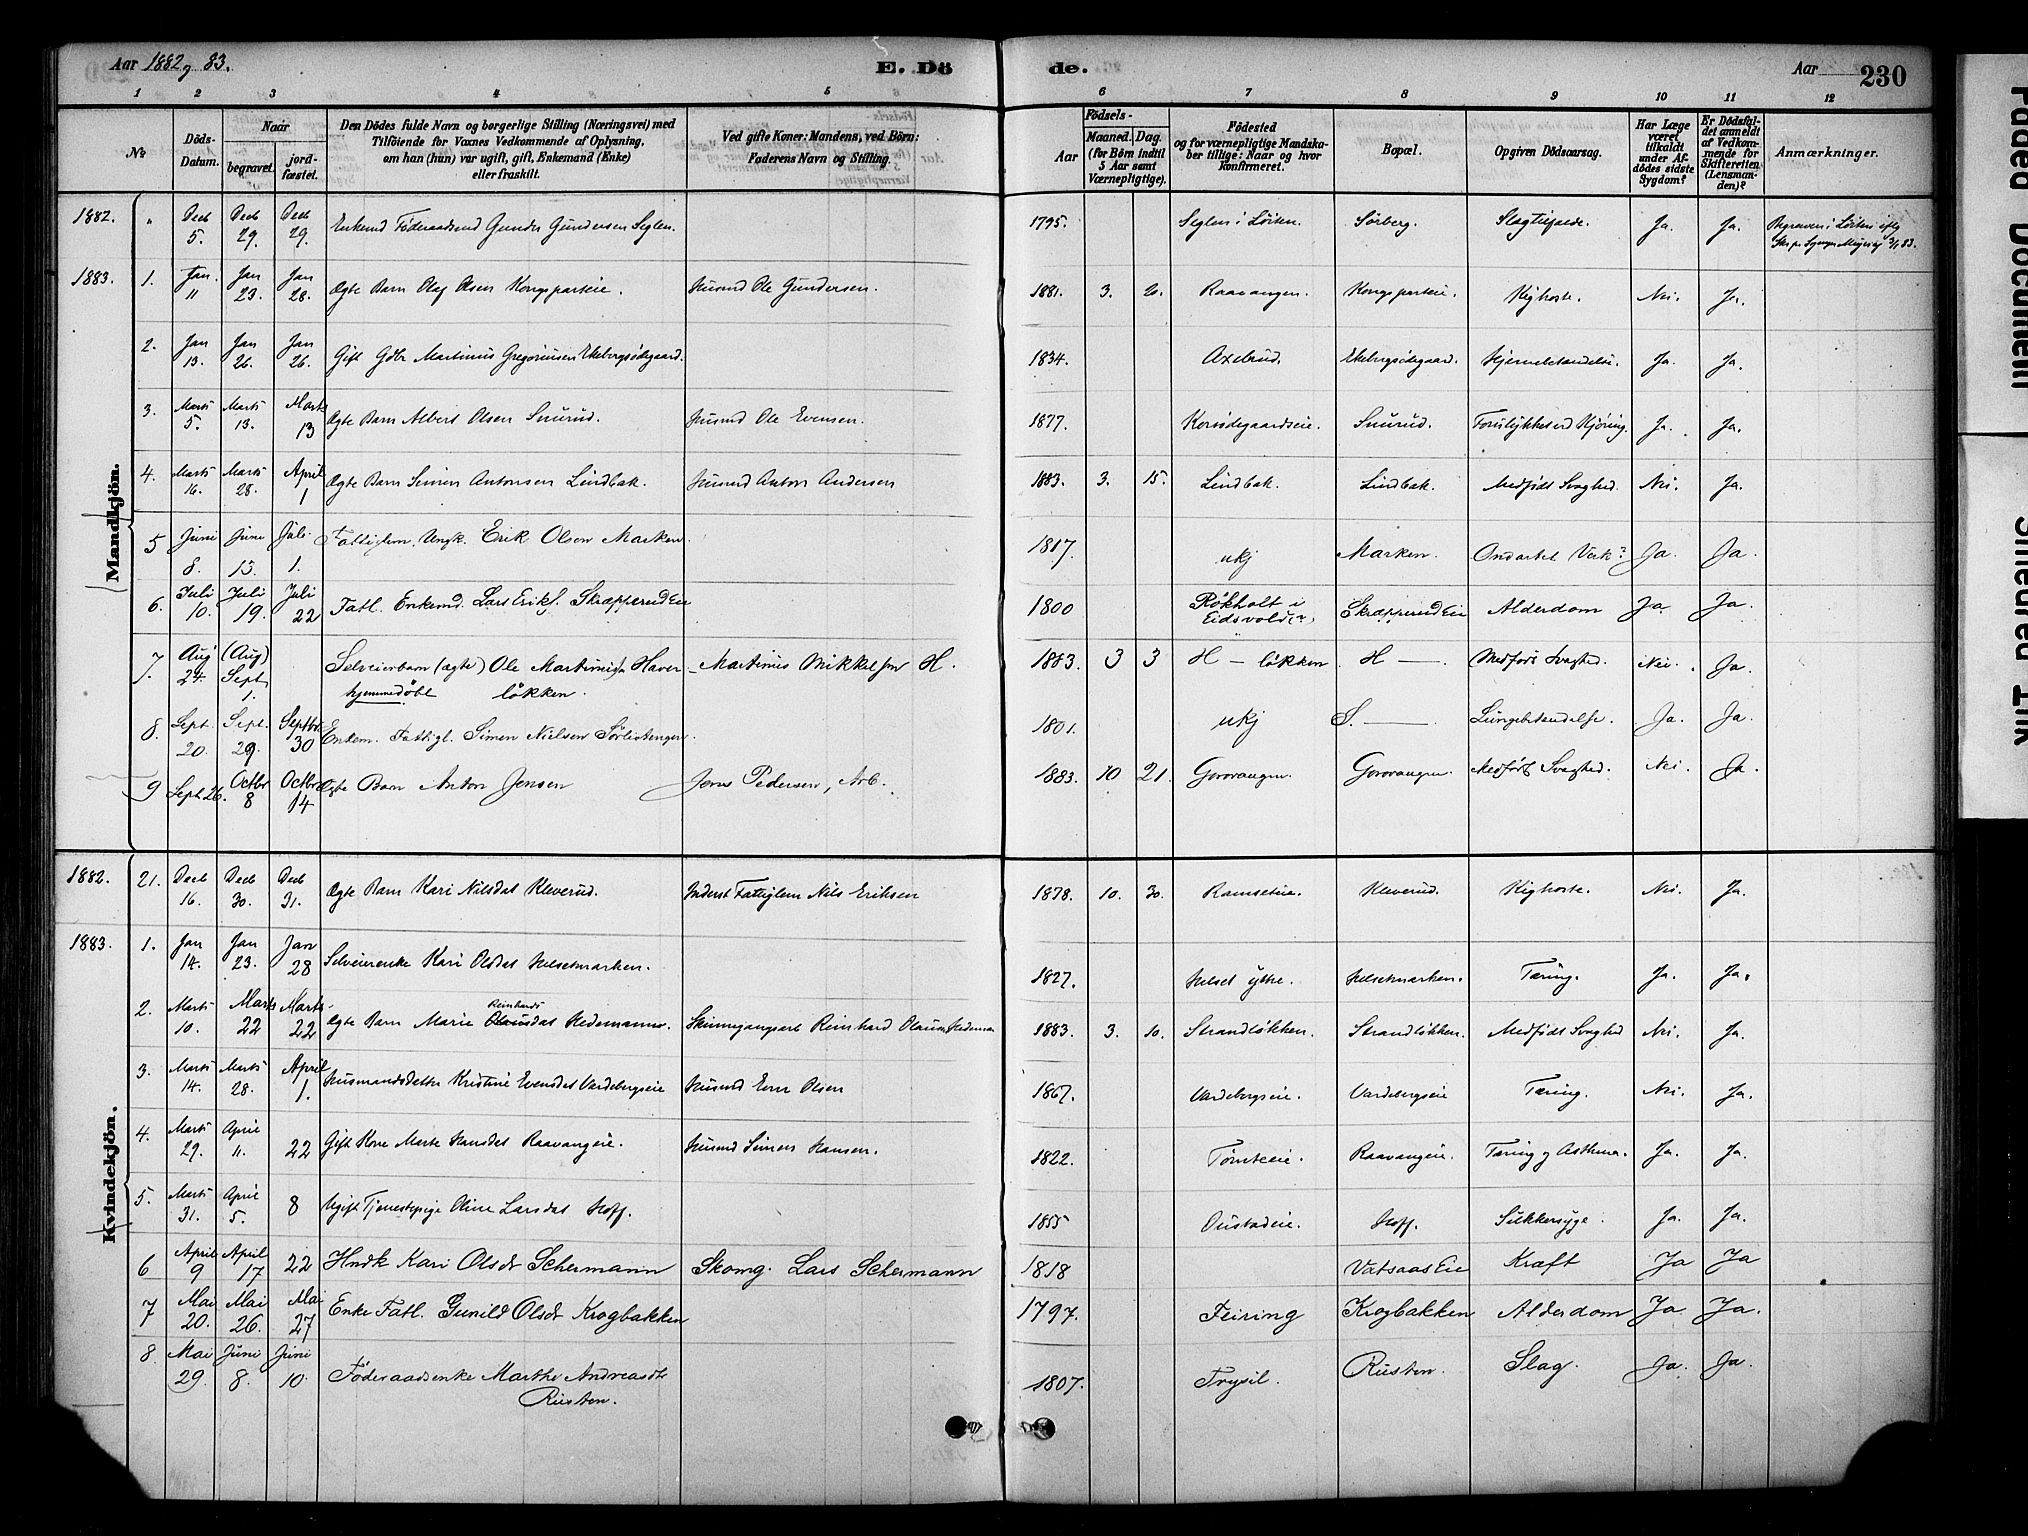 Aar 1882 og 83.
E. Dö
de.
Aar
230
1 2 3 4 5 6 7 8 9 10 11 12
No
Döds-Datum.
Naar
begravet.
jord-fæstet.
Den Dödes fulde Navn og borgerlige Stilling (Næringsvei) med
Tilföiende for Voxnes Vedkommende af Oplysning,
om han (hun) var ugift, gift, Enkemand (Enke)
eller fraskilt.
Ved gifte Koner: Mandens, ved Börn:
Faderens Navn og Stilling.
Födsels-
Aar
Maaned. Dag.
(for Börn indtil
5 Aar samt
Værnepligtige).
Födested
og for værnepligtige Mandska-
ber tillige: Naar og hvor
konfirmeret.
Bopæl.
Opgiven Dödsaarsag.
Har Læge
været
tilkaldt
under Af-
dödes sidste
Sygdom?
Er Dödsfal-
det anmeldt
af Vedkom-
mende for
Skifteretten
(Lensman-
den)?
Anmærkninger.
Mandkjön.
1882. " Decb 5. Decb 29. Decb 29. Enkemd Føderaadsmd Gunder Gundersen Seglen. 1795. Seglen i Løiten Sørberg. Slagtilfælde. Ja. Ja. Begraven i Løiten
1883. 1. Jan. 11 Jan 23. Jan 28. Ægte Barn Olaf Olsen Kongsparteie. Husmd Ole Gundersen. 1881. 3. 20. Raavangen. Kongsparteie. Kighoste. Nei. Ja.
2. Jan 13. Jan 26. Jan 26. Gift Gdbr Martinus Gregoriusen Ekebergsødegaard. 1834. Axelrud. Ekebergsødegaard. Hjernebetændelse. Ja. Ja.
3. Marts 5. Marts 13. Marts 13 Ægte Barn Albert Olsen Snurud. Husmd Ole Evensen. 1877. Korsødegaardseie. Snurud. Forulykket ved Kjøring. Ja. Ja.
4. Marts 16. Marts 28. April 1 Ægte Barn Simen Antonsen Lindbak. Husmd Anton Andersen 1883. 3. 15. Lindbak. Lindbak. Medfødt Svaghed. Nei. Ja.
5 Juni 8. Juni 13. Juli 1. Fattiglem, Ungk. Erik Olsen Marken. 1817. ukj Marken. Ondartet Værk? Ja. Ja.
6. Juli 10. Juli 19. Juli 22 Fatl. Enkemd. Lars Eriks. Skræpperud Eie 1800 Røkholt i Eidsvold (?) Skræpperud Eie Alderdom Ja Ja.
7. Aug 24. (Aug) Sept 1. Selveierbarn (ægte) Ole Martiniusen Haver-
hjemmedøbt løkken. Martinus Mikkelsen H. 1883. 3 3 H – løkken H — Medfødt Svaghed. Nei. Ja.
8. Sept. 20. Sept. 29. Septbr. 30 Enkem. Fattigl. Simen Nielsen Sørlistengen. 1801. ukj S. — Lungebetændelse. Ja. Ja.
9 Sept 26. Octbr 8 Octbr 14 Ægte Barn Anton Jensen Jens Pedersen, Arb. 1883. 10 21. Gorovangen. Gorovangen. Medfødt Svaghed. Nei. Ja.
Kvindekjön.
1882. 21. Decb 16. Decb 30. Decb 31. Ægte Barn Kari Nilsdat Kleverud. Inderst Fattiglem Nils Eriksen 1878. 10. 30. Ramseteie. Kleverud. Kighoste. Nei. Ja.
1883. 1. Jan 14. Jan 23. Jan 28 Selveierenke Kari Olsdat Helsetmarken. 1827. Helset ytre. Helsetmarken. Tæring. Ja. Ja.
2. Marts 10. Marts 22 Marts 22 Ægte Barn Marie Reinhards Olausdat Hedemann. Skinnegangsarb Reinhard Olausen Hedeman 1883. 3. 10. Strandløkken. Strandløkken. Medfødt Svaghed Nei. Ja.
3. Marts 14. Marts 28. April 1. Husmandsdatter Kristine Evensdat Vardebergseie Husmd Even Olsen 1867. Vardebergseie. Vardebergseie Tæring. Nei. Ja.
4. Marts 29. April 11. 22 Gift Kone Marte Hansdat Raavangeie. Husmd Simen Hansen. 1822. Tømteeie. Raavangeie. Tæring og Asthma. Ja. Ja.
5. Marts 31. April 5. 8 Ugift Tjenestepige Oline Larsdat Hoff. 1855 Oustadeie. Hoff. Sukkersyge. Ja. Ja.
6 April 9 April 17 22 Hmdk Kari Olsdt Schermann Skomg. Lars Schermann 1818 Vatsaas Eie Kræft Ja Ja
7 Mai 20. Mai 26. Mai 27 Enke Fatl. Gunild Olsdt Krogbakken 1797. Feiring Krogbakken Alderdom Ja Ja.
8. Mai 29. Juni 8. Juni 10. Føderaadsenke Marthe Andreasdt
Rusten. 1807. Trysil. Rusten. Slag. Ja. Ja.
Faded Document
Smeared Ink